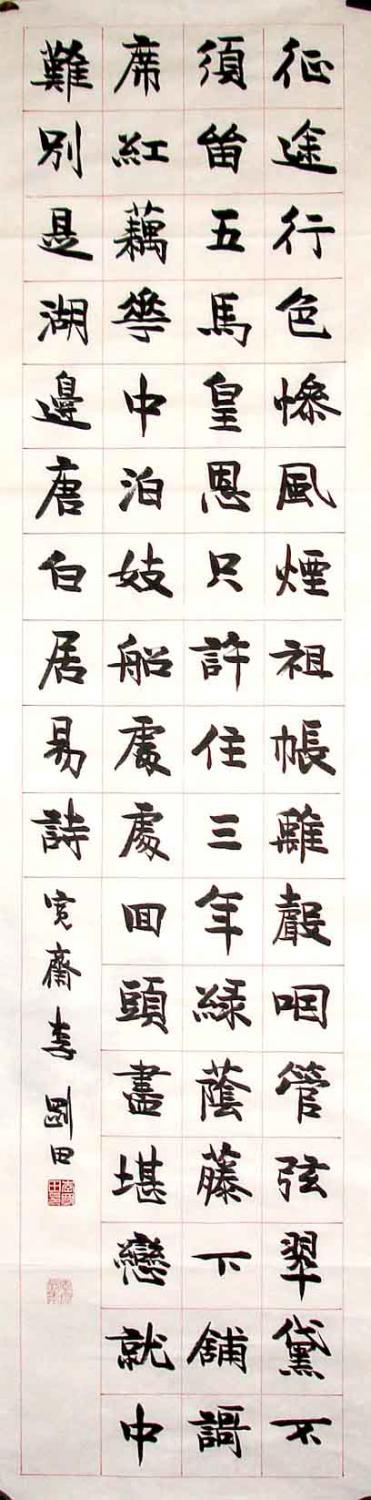 征途行色慘風煙祖帳離聲咽管弦翠黛不
須留五馬皇恩只許住三年綠蔭藤下舖謌
席紅藕華中泊妓船處處回頭盡堪戀就中
難別是湖邊唐白居易詩 寬齋李剛田